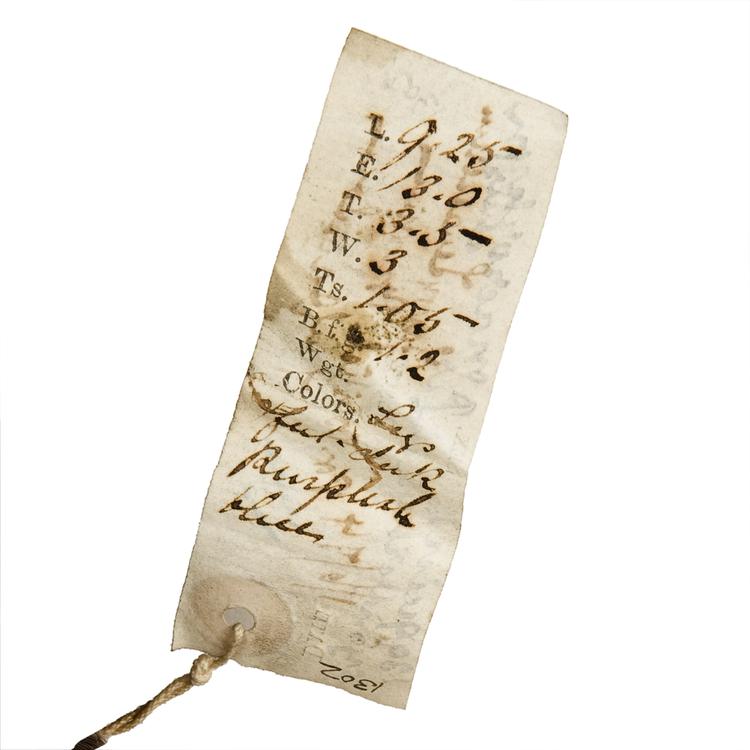 L. 9.25
E. 13.0
T. 3.5
W. 3
Ts. 1.05
B.f. 1.2
Wgt.
Colors. Legs
feet dark
Purplish
blue
1302